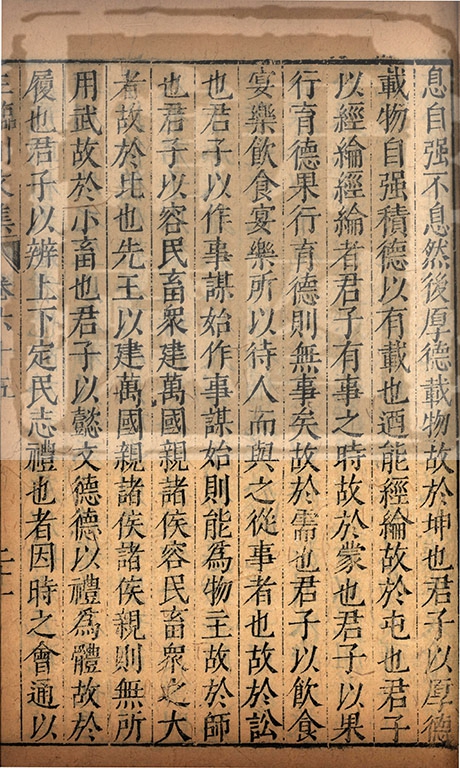 息自强不息然後厚德載物故於坤也君子以厚德
載物自强積德以有載也迺能經綸故於屯也君子
以經綸經綸者君子有事之時故於蒙也君子以果
行育德果行育德則無事矣故於需也君子以飲食
宴樂飲食宴樂所以待人而與之從事者也故於訟
也君子以作事謀始作事謀始則能為物主故於師
也君子以容民畜衆建萬國親諸侯容民畜衆之大
者故於比也先王以建萬國親諸侯親則無所
用武故於小畜也君子以懿文德德以禮為體故於
履也君子以辨上下定民志禮也者因時之會通以
王臨川文集 卷六十五